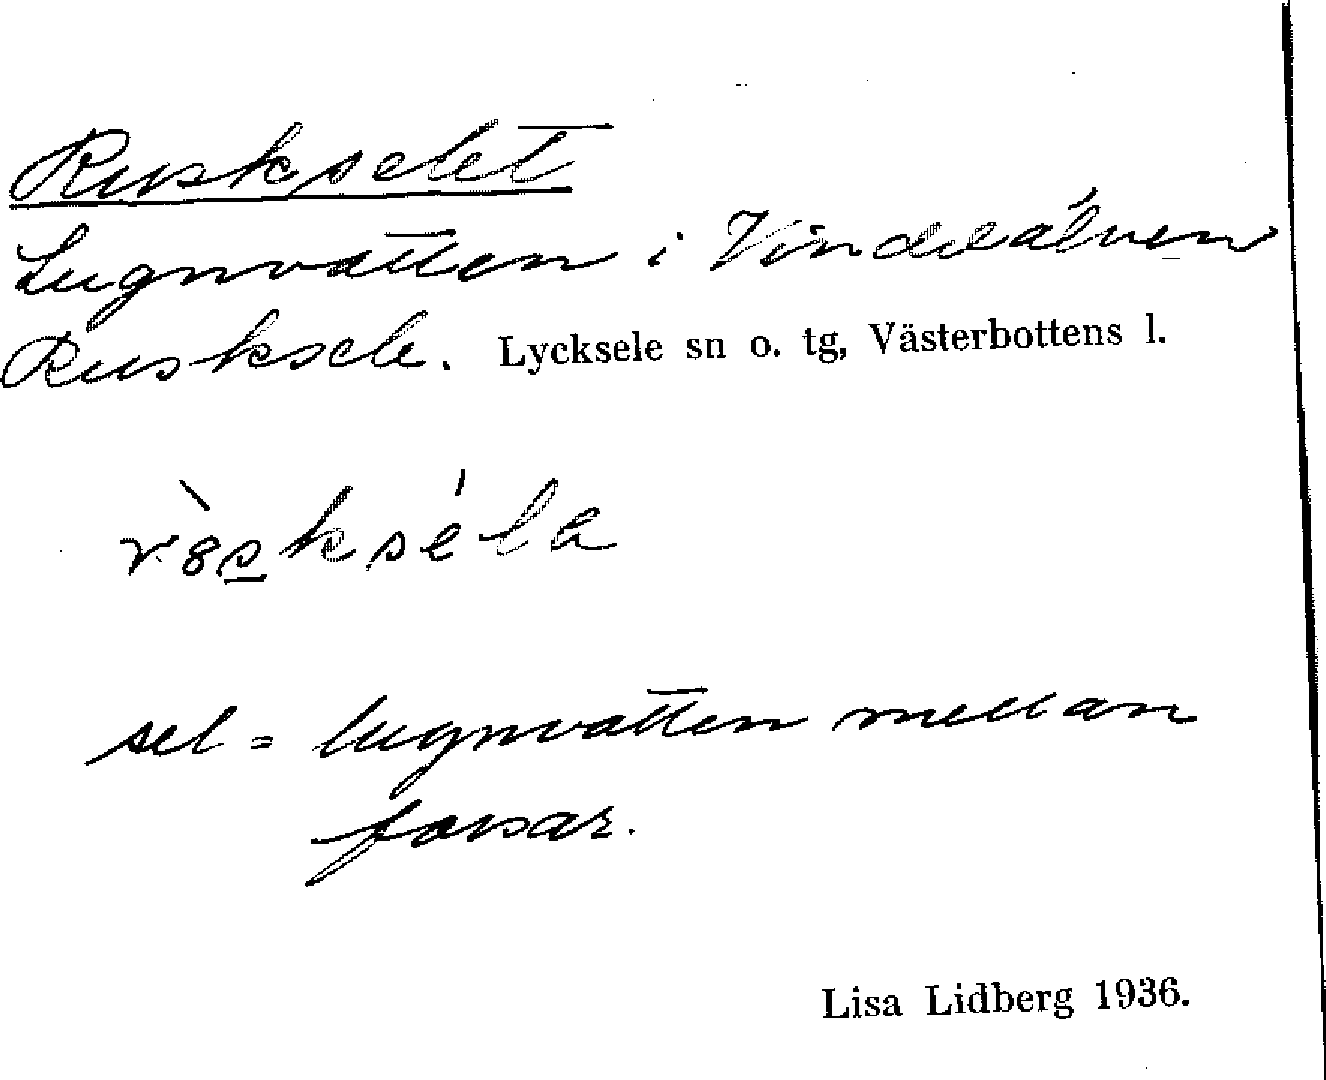 Ruskselet
Lugnvatten i Vindelälven
Rusksele. Lycksele sn o. tg, Västerbottens l.
sel = lugnvatten mellan
forsar.
Lisa Lidberg 1936.